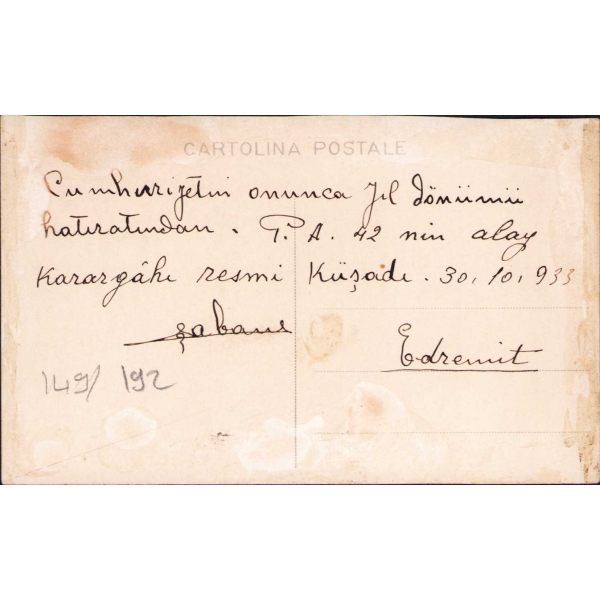 CARTOLINA POSTALE
Cumhurijetin onunca Jıl dönümü
hatıratından. P. A. 42 nin alay
Karargâhı resmi Küşadı. 30.10.933
Şaban
Edremit
149/192